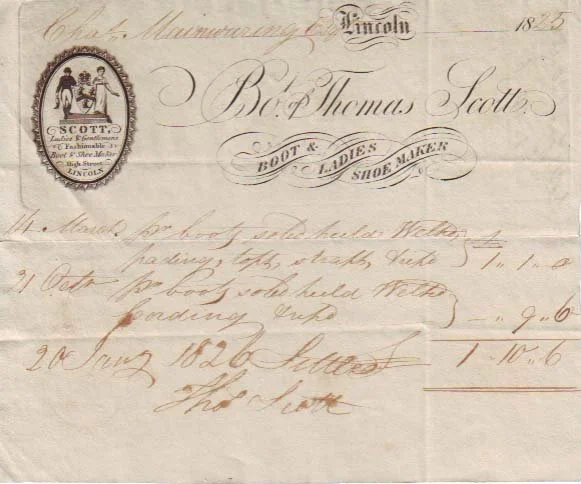 Chas. Mainwaring Esqr Lincoln 1825
Bot. of Thomas Scott.
BOOT & LADIES SHOE MAKER
SCOTT,
Ladies & Gentlemens
Fashionable
Boot & Shoe Maker
High Street
LINCOLN
14 March pr boots soled heeld Welted
tops, straps £ 1 " 1 " 0
21 Octr pr boots soled heeld Welted
" 9 " 6
20 Jany 1826 Settled 1 " 10 " 6
Thos Scott